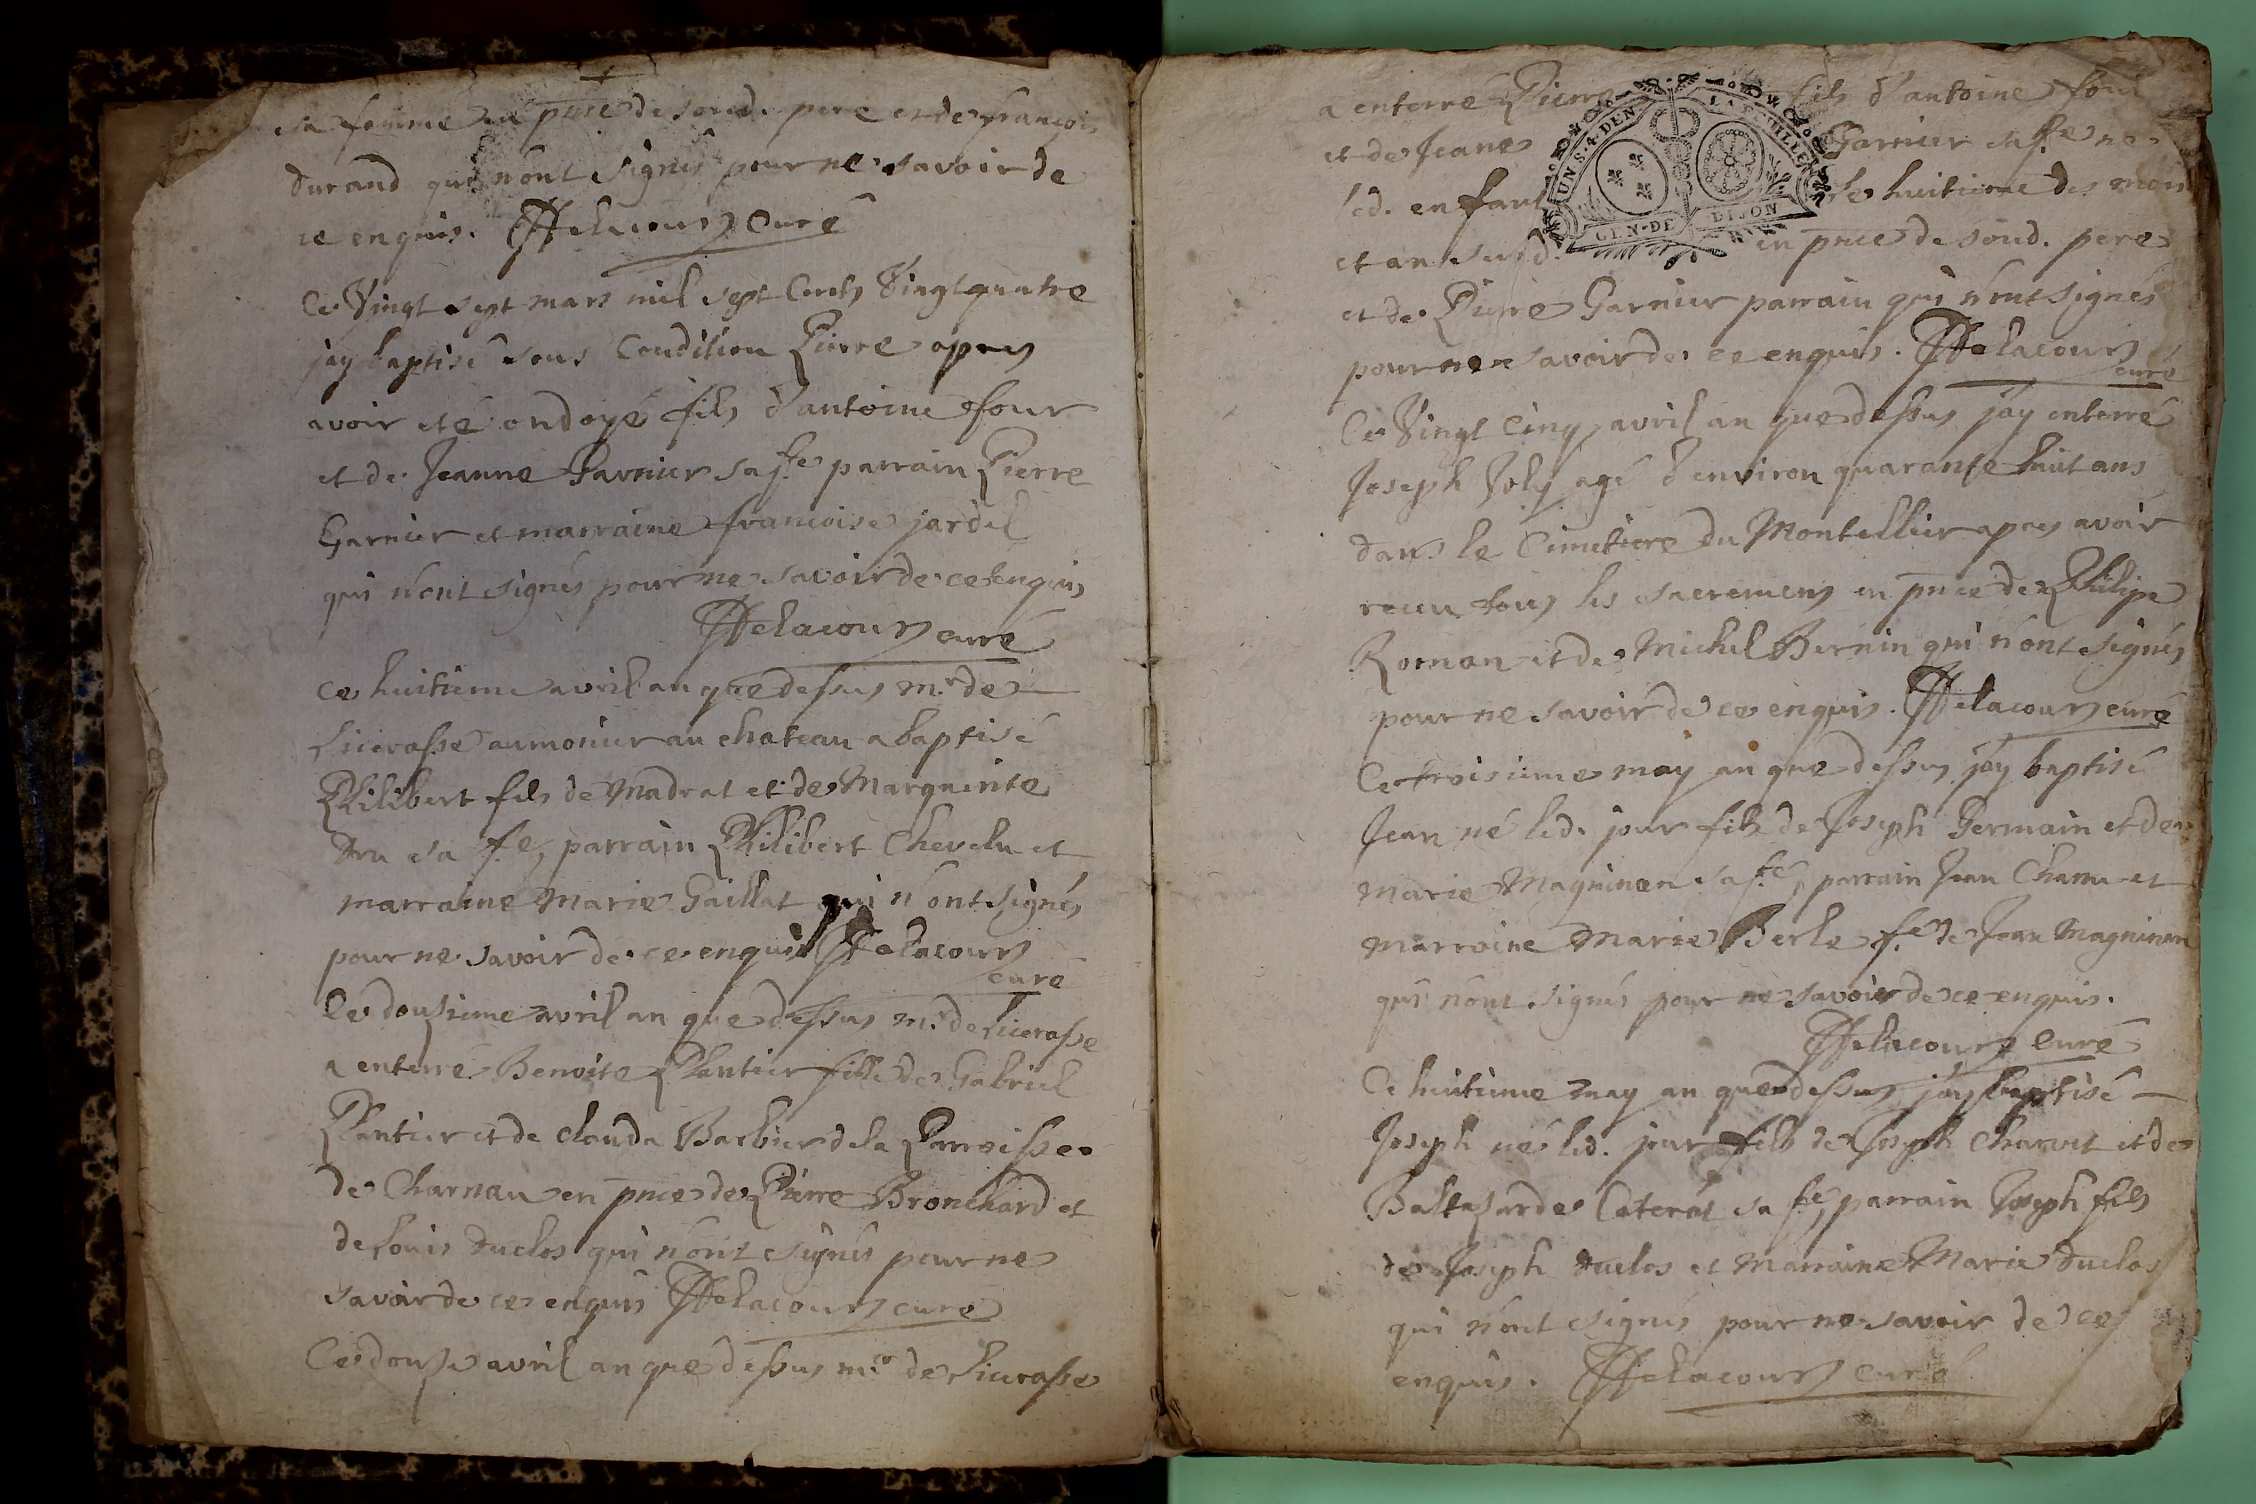 sa femme en pnce de soud. pere et de françois
durand qui n'ont signés pour ne savoir de
ce enquis. Delacour curé
Ce Vingt sept mars mil sept Cents Vingt quatre
jay baptisé sous Condition Pierre apres
avoir eté ondoyé fils d'antoine four
et de Jeanne Garnier sa fe parrain Pierre
Garnier et marraine francoise jardel
qui n'ont signés pour ne savoir de ce enquis
Delacour curé
Ce huitieme avril an que dessus mr de
Liicrasse aumonier au chateau a baptisé
Philibert fils de Madrat et de Marguerite
dru sa fe, parrain Philibert Chevelu et
marraine Marie Gaillat qui n'ont signés
pour ne savoir de ce enquis Delacour
curé
Ce dousieme avril an que dessus mr de Liicrasse
a enterré Benoite Plantier fille de Gabriel
Plantier et de clauda Barbier de la Parroisse
de Charnau en pnce de Pierre Bronchard et
de Louis duclos qui n'ont signés pour ne
savoir de ce enquis Delacour curé
Ce douse avril an que dessus mr de Liicrasse
a enterré Pierre fils d'antoine four
et de Jeane Garnier sa fe né
led. enfant le huitieme des mois
et an susd. en pnce de soud. pere
et de Pierre Garnier parrain qui n'ont signés
pour ne savoir de ce enquis. Delacour
curé
Ce Vingt Cinq avril an que dessus j'ay enterré
Joseph Joly agé d'environ quarante huit ans
dans le Cimetiere du Montellier apres avoir
receu tous les sacremens en pnce de Philipe
Roman et de Michel Bernin qui n'ont signés
pour ne savoir de ce enquis. Delacour curé
Ce troisieme may an que dessus j'ay baptisé
Jean né led. jour fils de Joseph Germain et de
Marie Magninen sa fe, parrain Jean Chanu et
marroine Marie Berle fe de Jean Magninen
qui n'ont signés pour ne savoir de ce enquis.
Delacour curé
Ce huitieme may an que dessus j'ay baptisé
Joseph né led. jour fils de Joseph Charvet et de
Baltasarde Caterat sa fe, parrain Joseph fils
de Joseph duclos et Marraine Marie duclos
qui n'ont signés pour ne savoir de ce
enquis. Delacour curé
UN.S.4.DEN LA FEUILLE
GEN.DE DIJON